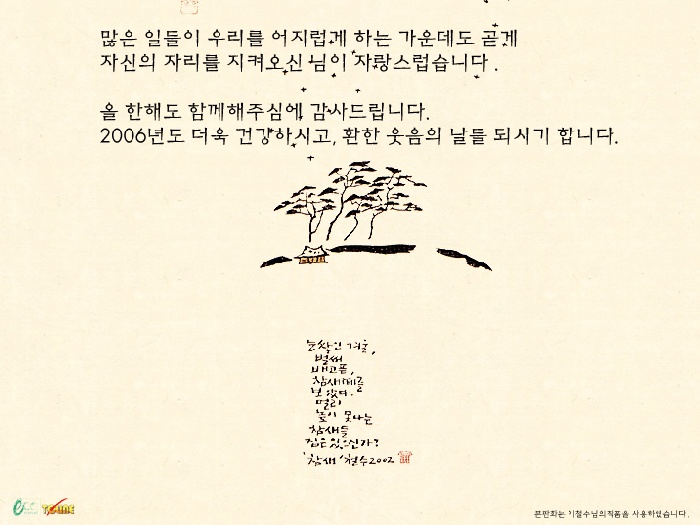 많은 일들이 우리를 어지럽게 하는 가운데도 곧게
자신의 자리를 지켜오신 님이 자랑스럽습니다.
올 한해도 함께해주심에 감사드립니다.
2006년도 더욱 건강하시고, 환한 웃음의 날들 되시기 합니다.
눈쌓인 겨울,
벌써
배고픈,
참새떼를
보았다.
멀리
높이 못나는
참새들
집은 있으신가?
'참새' 철수2002
ecc
본판화는 이철수님의작품을 사용하였습니다.